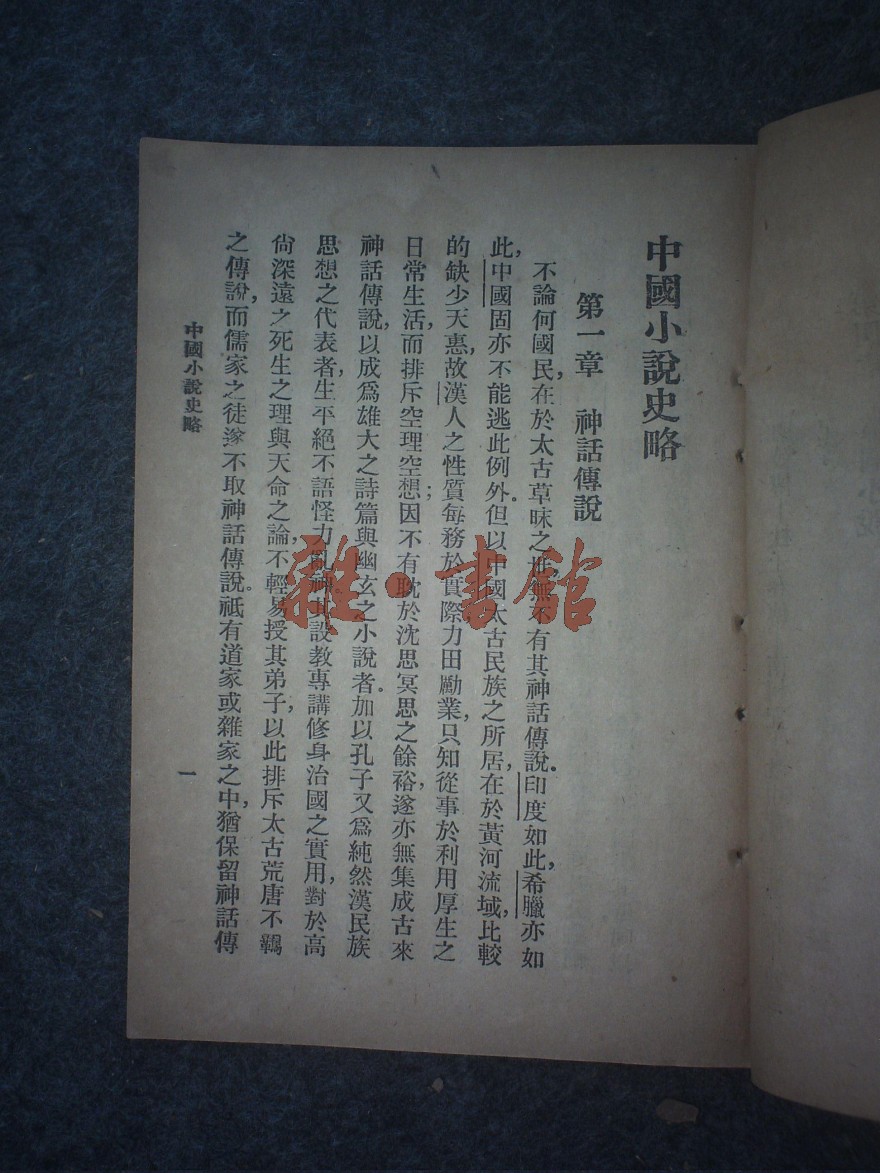 中國小說史略
第一章　神話傳說
不論何國民，在於太古草昧之世，無不有其神話傳說。印度如此，希臘亦如
此，中國固亦不能逃此例外。但以中國太古民族之所居，在於黃河流域，比較
的缺少天惠，故漢人之性質每務於實際，力田勵業，只知從事於利用厚生之
日常生活，而排斥空理空想；因不有耽於沈思冥思之餘裕，遂亦無集成古來
神話傳說，以成爲雄大之詩篇與幽玄之小說者。加以孔子又爲純然漢民族
思想之代表者，生平絕不語怪力亂神，其設教專講修身治國之實用，對於高
尙深遠之死生之理與天命之論，不輕易授其弟子；以此排斥太古荒唐不羈
之傳說，而儒家之徒遂不取神話傳說。祇有道家或雜家之中，猶保留神話傳
中國小說史略
一
雜·書館